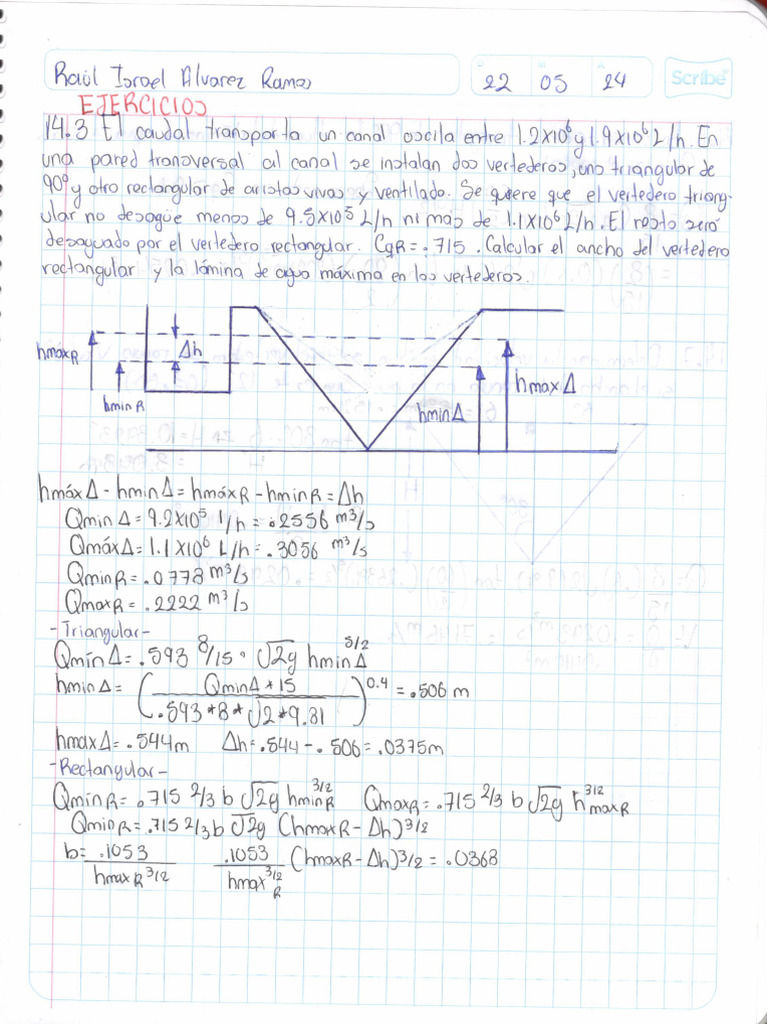 Raúl Israel Alvarez Ramos
22 05 24
Scribe
EJERCICIOS
14.3 El caudal transporta un canal oscila entre 1.2X10⁶ y 1.9X10⁶ L/h. En
una pared transversal al canal se instalan dos vertederos, uno triangular de
90° y otro rectangular de aristas vivas y ventilado. Se quiere que el vertedero triang-
ular no desagüe menos de 9.5X10⁵ L/h ni más de 1.1X10⁶ L/h. El resto será
desaguado por el vertedero rectangular. CqR=.715. Calcular el ancho del vertedero
rectangular y la lámina de agua máxima en los vertederos.
hmaxR
Δh
hminR
hminΔ
hmaxΔ
hmáxΔ - hminΔ = hmáxR - hminR = Δh
QminΔ = 9.2X10⁵ l/h = .2556 m³/s
QmáxΔ = 1.1X10⁶ L/h = .3056 m³/s
QminR = .0778 m³/s
QmaxR = .2222 m³/s
-Triangular-
QmínΔ = .593 8/15 · √2g hminΔ^5/2
hminΔ = (QminΔ*15 / .593*8*√2*9.81)^0.4 = .506 m
hmaxΔ = .544m Δh = .544 - .506 = .0375m
-Rectangular-
QmínR = .715 2/3 b √2g hminR^3/2 QmaxR = .715 2/3 b √2g hmaxR^3/2
QminR = .715 2/3 b √2g (hmaxR - Δh)^3/2
b = .1053 / hmaxR^3/2 .1053 / hmaxR^3/2 (hmaxR - Δh)^3/2 = .0368